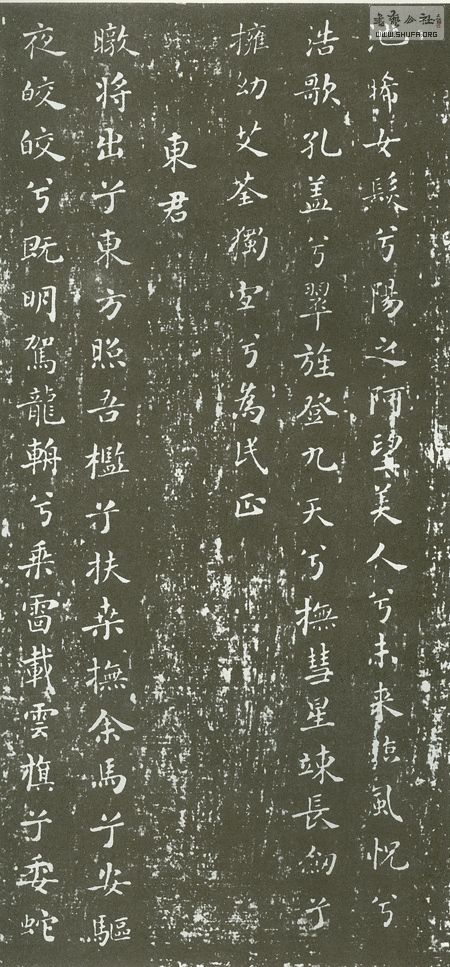 池晞女髮兮陽之阿望美人兮未来臨風怳兮
浩歌孔盖兮翠旌登九天兮撫彗星竦長劒兮
擁幼艾荃獨宜兮為民正
東君
暾将出兮東方照吾檻兮扶桒撫余馬兮安驅
夜皎皎兮既明駕龍輈兮乗雷載雲旗兮委蛇
WWW.SHUFA.ORG